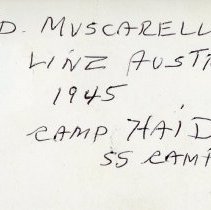 D. MUSCARELL
LINZ AUST
1945
CAMP HAID
SS CAMP